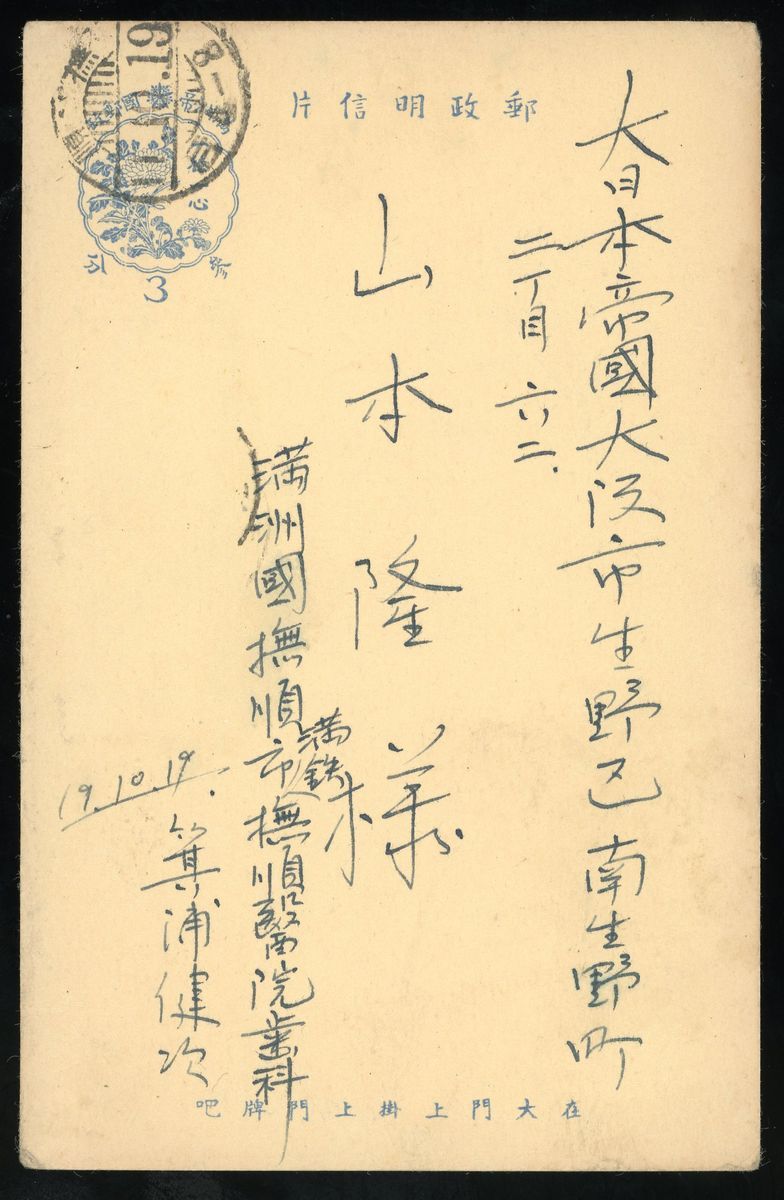 郵政明信片
大日本帝國大阪市生野区南生野町
二丁目六二、
山本隆様
満洲國撫順市撫順醫院歯科
満鉄
19.10.19.
箕浦健次
参分
3
19
8-
在大門上掛上門牌吧